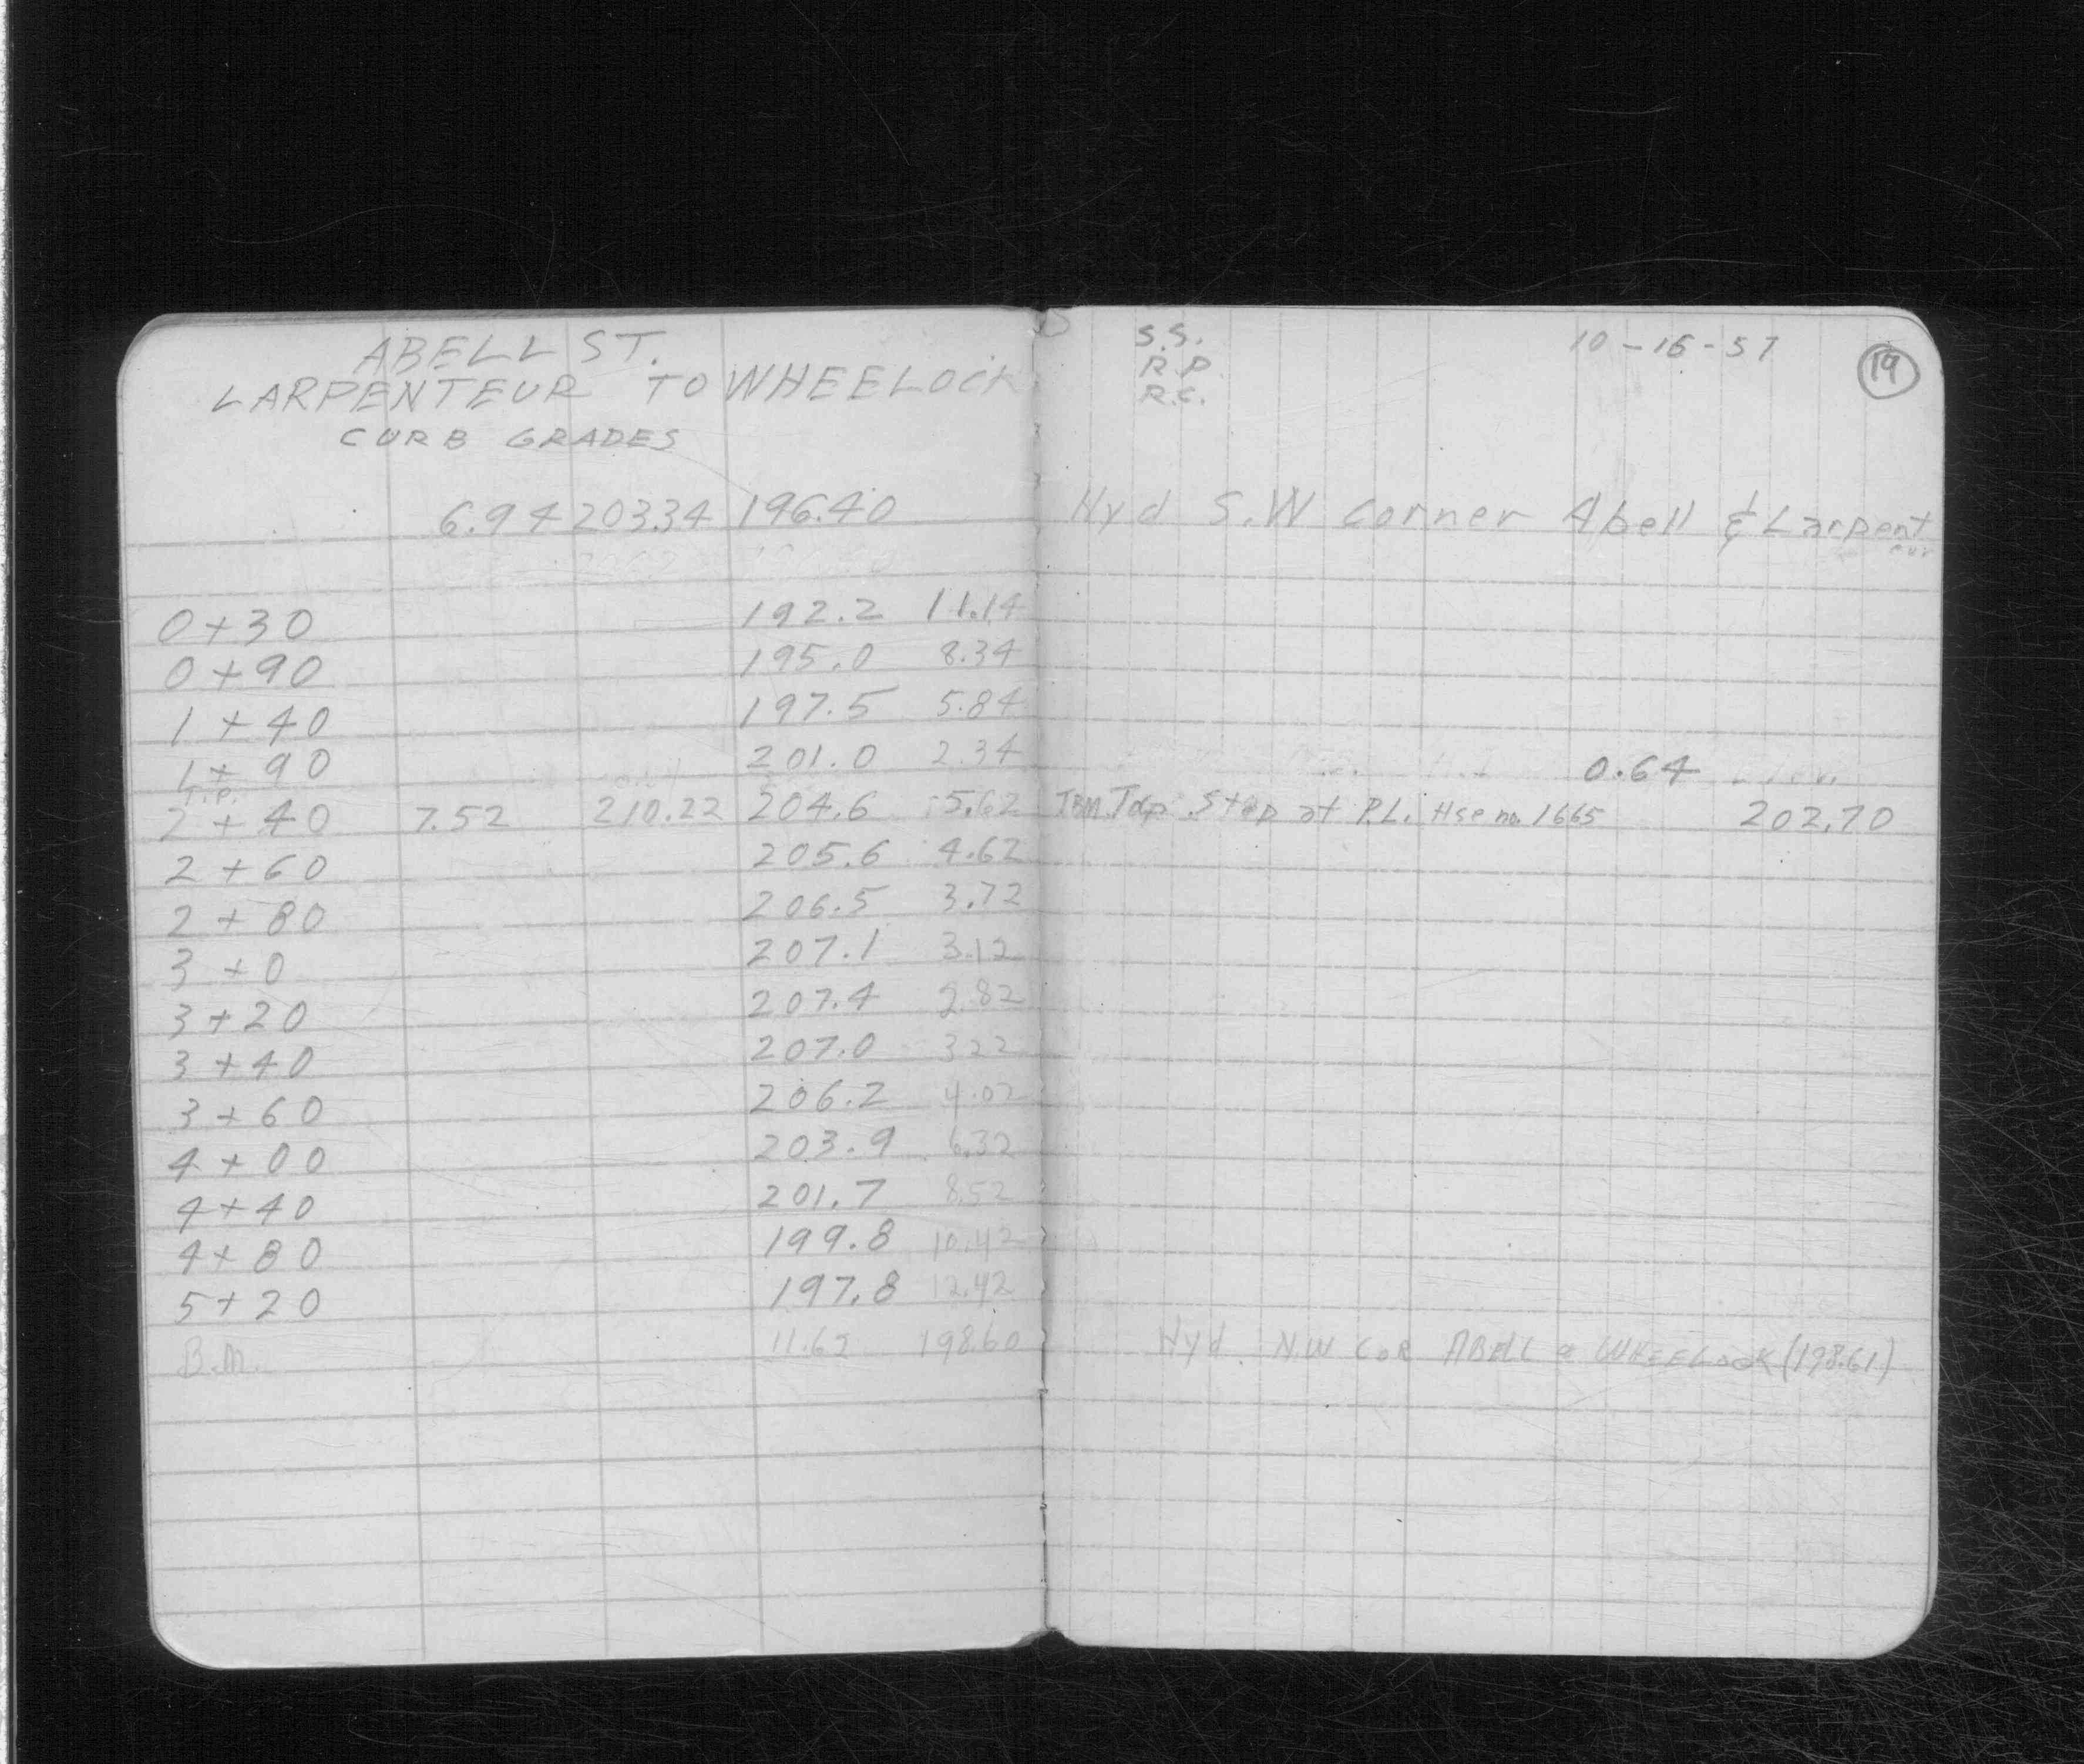 ABELL ST.
LARPENTEUR TO WHEELOCK
CURB GRADES
6.94 203.34 196.40
0+30 192.2 11.14
0+90 195.0 8.34
1+40 197.5 5.84
1+90 201.0 2.34
T.P.
2+40 7.52 210.22 204.6 5.62
2+60 205.6 4.62
2+80 206.5 3.72
3+0 207.1 3.12
3+20 207.4 2.82
3+40 207.0 3.22
3+60 206.2 4.02
4+00 203.9 6.32
4+40 201.7 8.52
4+80 199.8 10.42
5+20 197.8 12.42
B.M. 11.62 198.60
S.S. 10-16-57 19
R.P.
R.C.
Hyd S.W Corner Abell & Larpent
eur
0.64
TBM. Top Step at P.L. Hse no. 1665 202.70
Hyd. N.W COR ABELL & WHEELOCK (198.61)